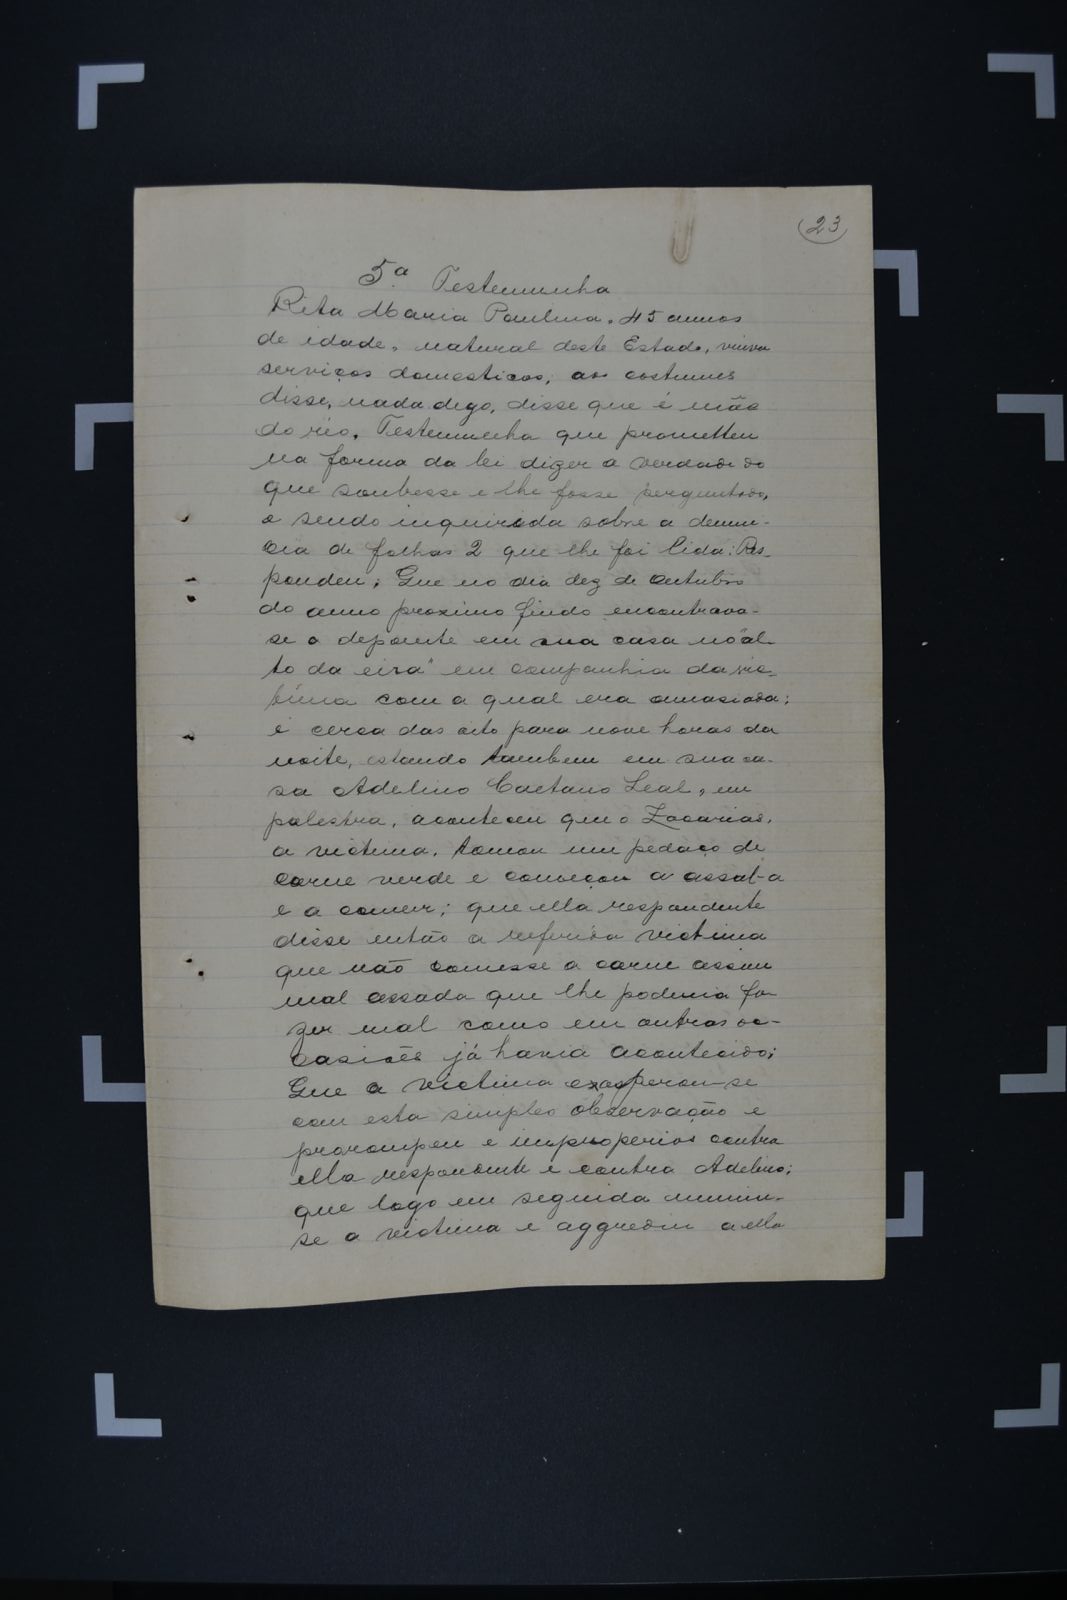 23
5ª Testemunha
Rita Maria Paulina, 45 annos
de idade, natural deste Estado, viuva
serviços domesticos, aos costumes
disse, nada digo, disse que é mãe
do réo. Testemunha que prometteu
na forma da lei dizer a verdade do
que soubesse e lhe fosse perguntado,
e sendo inquirida sobre a denun-
cia de folhas 2 que lhe foi lida: Res-
pondeu; Que no dia dez de outubro
do anno proximo findo encontrava-
se o depoente em sua casa no "al-
to da eira" em companhia da vic-
tima com a qual era amasiada;
e cerca das oito para nove horas da
noite, estando tambem em sua ca-
sa Adelino Caetano Leal, em
palestra, aconteceu que o Zacarias,
a victima, tomou um pedaço de
carne verde e começou a assal-a
e a comer; que ella respondente
disse então a referida victima
que não comesse a carne assim
mal assada que lhe poderia fa-
zer mal como em outras oc-
casiões já havia acontecido;
Que a victima exasperou-se
com esta simples observação e
prorompeu e improperios contra
ella respondente e contra Adelino;
que logo em seguida munin-
se a victima e aggrediu a ella